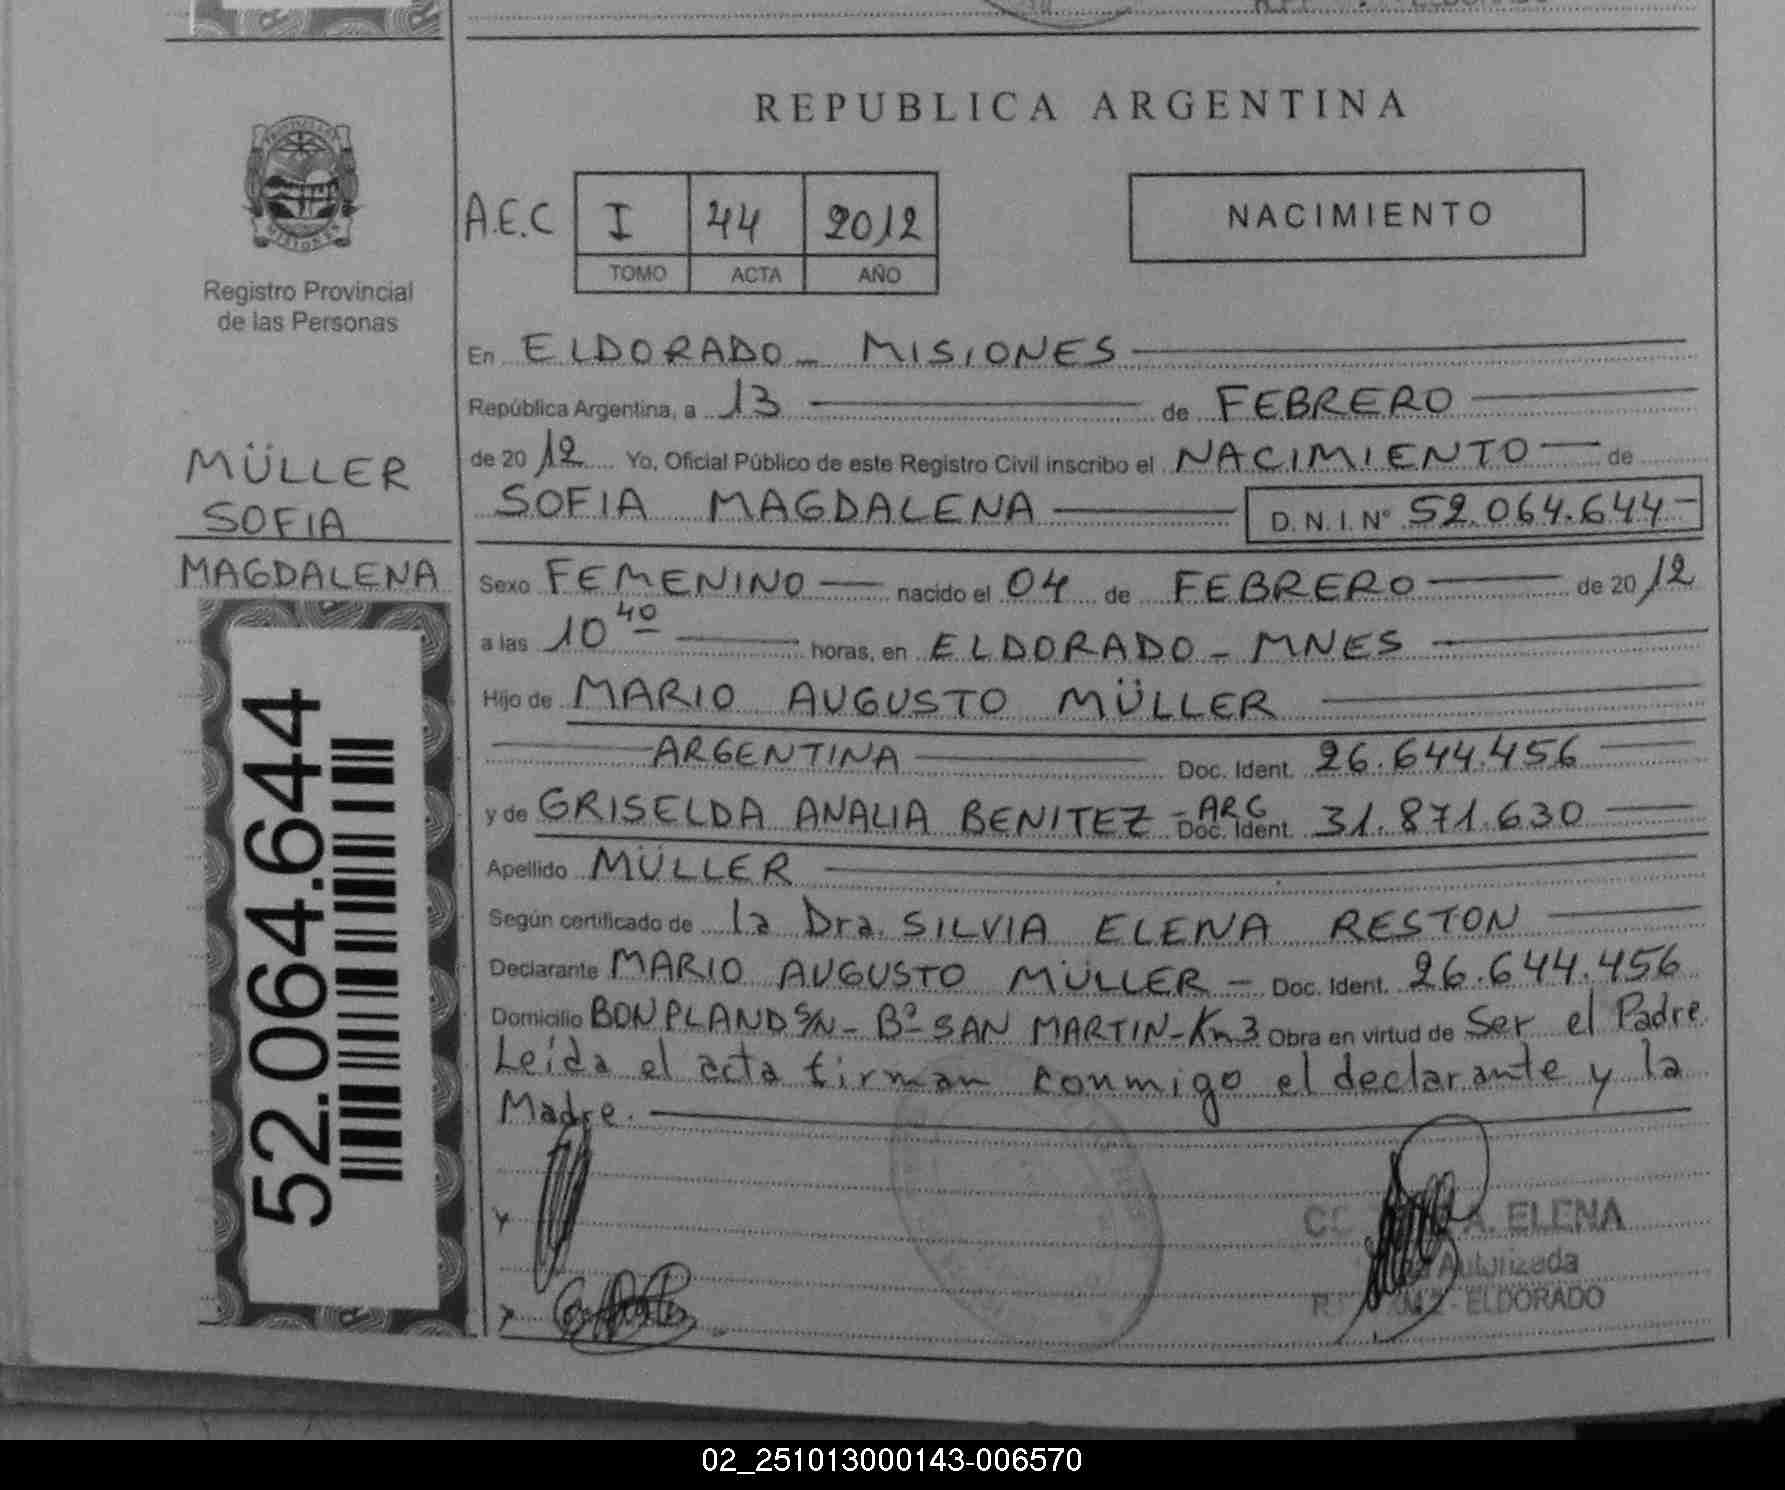 REPUBLICA ARGENTINA
A.E.C I 44 2012
TOMO ACTA AÑO
NACIMIENTO
PROVINCIA
MISIONES
Registro Provincial
de las Personas
MÜLLER
SOFIA
MAGDALENA
52.064.644
En ELDORADO - MISIONES
República Argentina, a 13 de FEBRERO
de 2012 Yo, Oficial Público de este Registro Civil inscribo el NACIMIENTO de
SOFIA MAGDALENA D.N.I. Nº 52.064.644
Sexo FEMENINO nacido el 04 de FEBRERO de 2012
a las 10 40 horas, en ELDORADO - MNES
Hijo de MARIO AUGUSTO MÜLLER
ARGENTINA Doc. Ident. 26.644.456
y de GRISELDA ANALIA BENITEZ - ARG Doc. Ident. 31.871.630
Apellido MÜLLER
Según certificado de la Dra. SILVIA ELENA RESTON
Declarante MARIO AUGUSTO MÜLLER - Doc. Ident. 26.644.456
Domicilio BONPLAND S/N - Bº SAN MARTIN - Km 3 Obra en virtud de Ser el Padre.
Leída el acta firman conmigo el declarante y la
Madre.
A. ELENA
Autorizada
ELDORADO
02_251013000143-006570